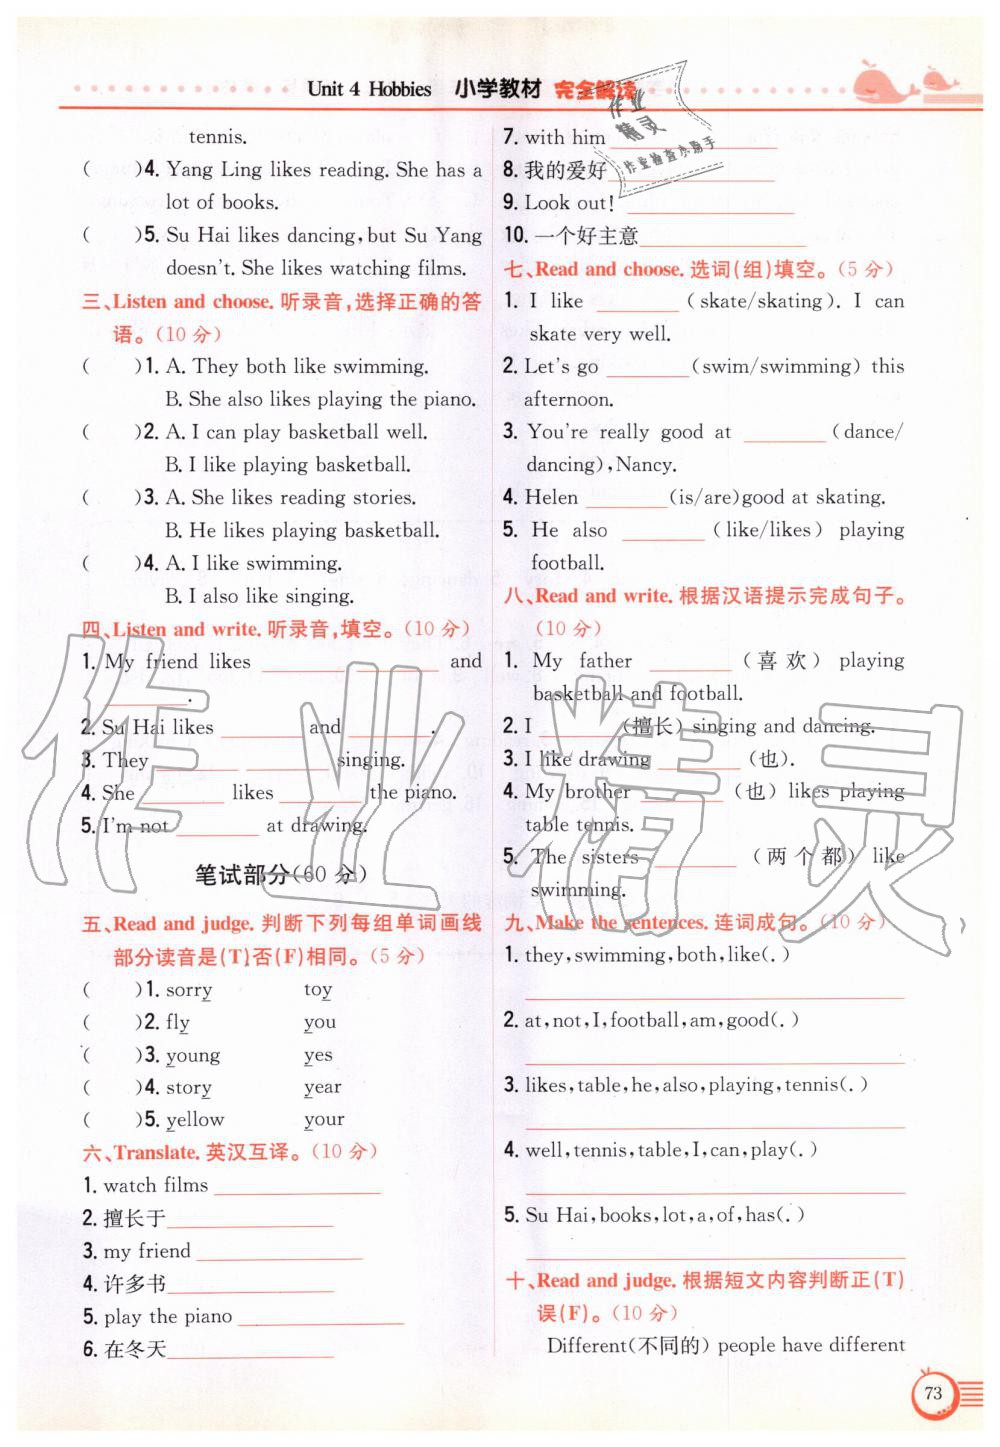 Unit 4 Hobbies 小学教材 完全解读
tennis.
( )4. Yang Ling likes reading. She has a
lot of books.
( )5. Su Hai likes dancing, but Su Yang
doesn't. She likes watching films.
三、Listen and choose. 听录音,选择正确的答
语。(10 分)
( )1. A. They both like swimming.
B. She also likes playing the piano.
( )2. A. I can play basketball well.
B. I like playing basketball.
( )3. A. She likes reading stories.
B. He likes playing basketball.
( )4. A. I like swimming.
B. I also like singing.
四、Listen and write. 听录音,填空。(10 分)
1. My friend likes ________ ________ and
________.
2. Su Hai likes ________ and ________.
3. They ________ ________ singing.
4. She ________ likes ________ the piano.
5. I'm not ________ at drawing.
笔试部分(60 分)
五、Read and judge. 判断下列每组单词画线
部分读音是(T)否(F)相同。(5 分)
( )1. sorry toy
( )2. fly you
( )3. young yes
( )4. story year
( )5. yellow your
六、Translate. 英汉互译。(10 分)
1. watch films ________
2. 擅长于________
3. my friend ________
4. 许多书________
5. play the piano ________
6. 在冬天________
7. with him ________
8. 我的爱好________
9. Look out! ________
10. 一个好主意________
七、Read and choose. 选词(组)填空。(5 分)
1. I like ________ (skate/skating). I can
skate very well.
2. Let's go ________ (swim/swimming) this
afternoon.
3. You're really good at ________ (dance/
dancing), Nancy.
4. Helen ________ (is/are)good at skating.
5. He also ________ (like/likes) playing
football.
八、Read and write. 根据汉语提示完成句子。
(10 分)
1. My father ________ (喜欢) playing
basketball and football.
2. I ________ (擅长) singing and dancing.
3. I like drawing ________ (也).
4. My brother ________ (也) likes playing
table tennis.
5. The sisters ________ (两个都) like
swimming.
九、Make the sentences. 连词成句。(10 分)
1. they, swimming, both, like(. )
2. at, not, I, football, am, good(. )
3. likes, table, he, also, playing, tennis(. )
4. well, tennis, table, I, can, play(. )
5. Su Hai, books, lot, a, of, has(. )
十、Read and judge. 根据短文内容判断正(T)
误(F)。(10 分)
Different(不同的) people have different
73
作业精灵
作业
精灵
作业检查小助手